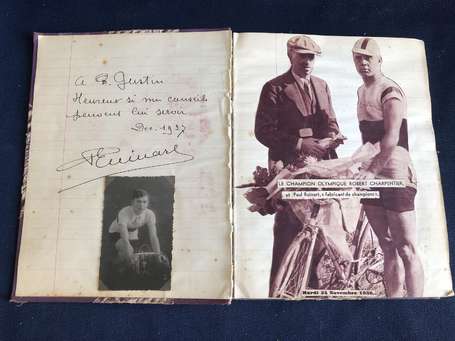 A E. Gustin
Heureux si mes conseils
peuvent lui servir
Dec. 1937
P Ruinart
LE CHAMPION OLYMPIQUE ROBERT CHARPENTIER,
et Paul Ruinart, « fabricant de champions ».
Mardi 24 Novembre 1936.